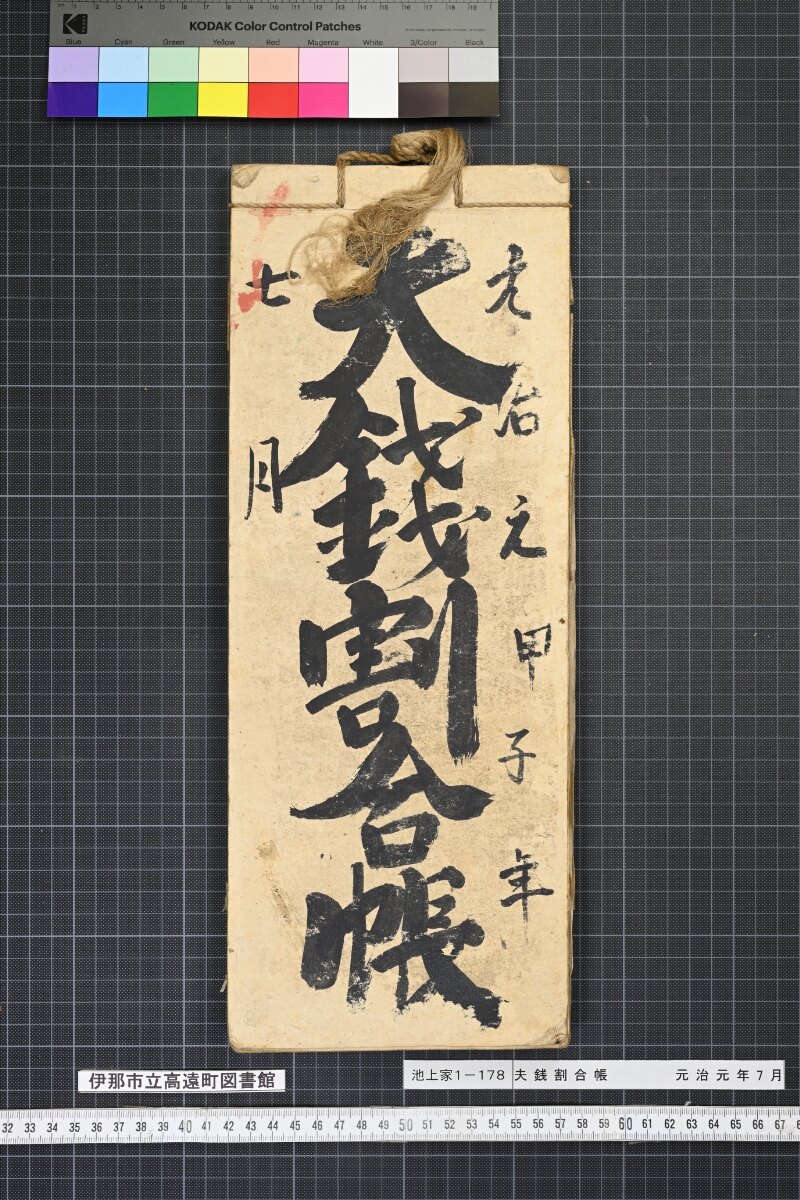 KODAK Color Control Patches
Blue Cyan Green Yellow Red Magenta White 3/Color Black
元治元甲子年
夫錢割合帳
七月
伊那市立高遠町図書館
池上家1－178 夫銭割合帳 元治元年7月
32 33 34 35 36 37 38 39 40 41 42 43 44 45 46 47 48 49 50 51 52 53 54 55 56 57 58 59 60 61 62 63 64 65 66 67